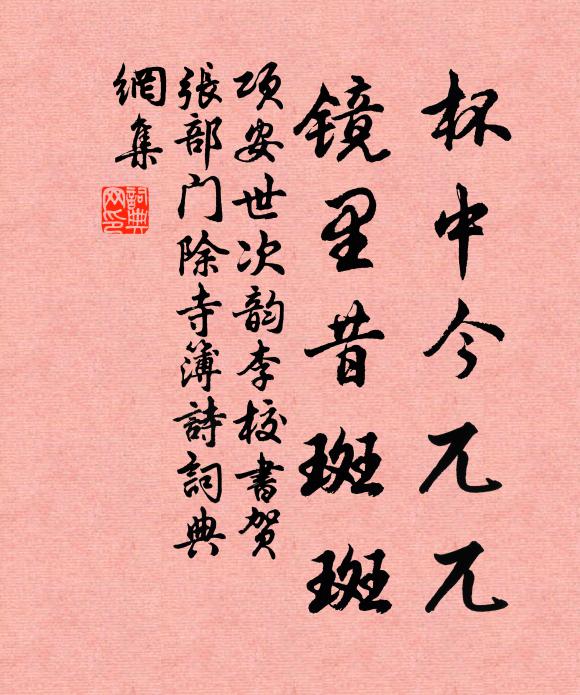 杯中今兀兀
镜里昔斑斑
项安世次韵李校書贺
張部门除寺簿詩詞典
網集
詞典
网印